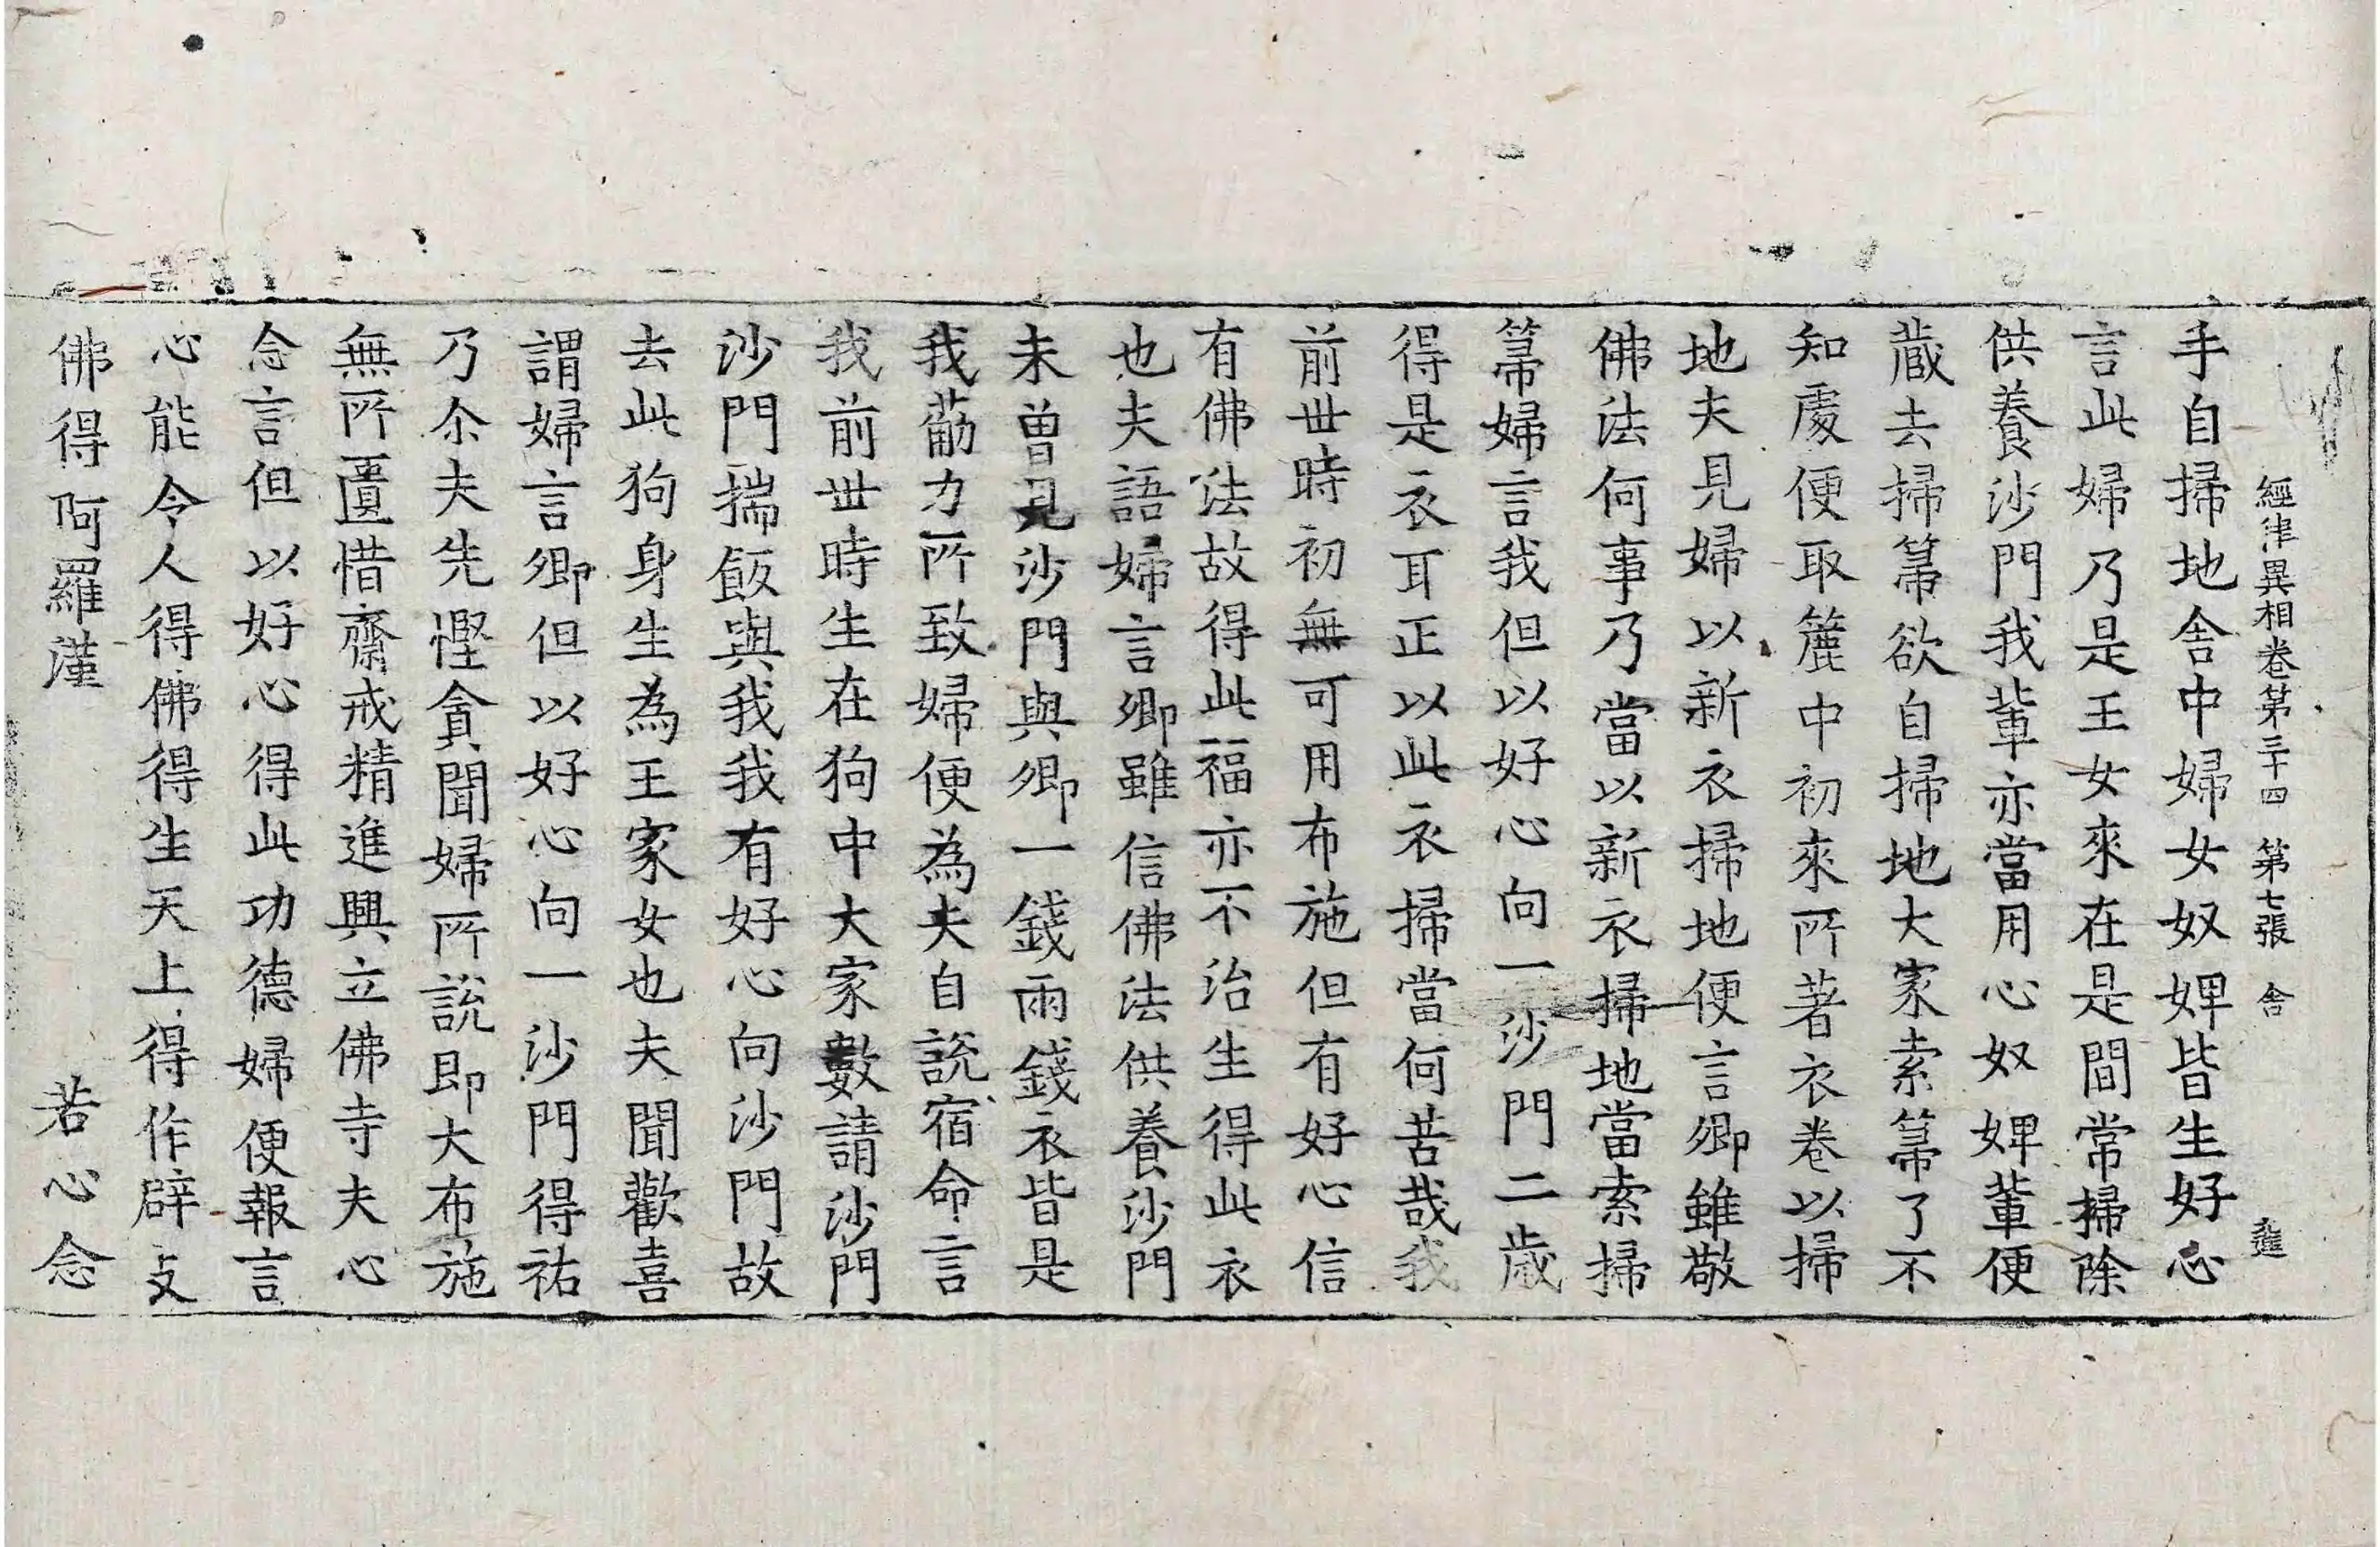 經律異相卷第三十四 第七張 舍 進
手自掃地舍中婦女奴婢皆生好心
言此婦乃是王女來在是間常掃除
供養沙門我輩亦當用心奴婢輩便
蔵去掃箒欲自掃地大家索箒了不
知處便取簏中初來所著衣卷以掃
地夫見婦以新衣掃地便言卿雖敬
佛法何事乃當以新衣掃地當索掃
箒婦言我但以好心向一沙門二歲
得是衣耳正以此衣掃當何苦哉我
前世時初無可用布施但有好心信
有佛法故得此福亦不治生得此衣
也夫語婦言卿雖信佛法供養沙門
未曾見沙門與卿一錢兩錢衣皆是
我勸力所致婦便為夫自説宿命言
我前世時生在狗中大家數請沙門
沙門揣飯與我我有好心向沙門故
去此狗身生為王家女也夫聞歡喜
謂婦言卿但以好心向一沙門得祐
乃尒夫先慳貪聞婦所説即大布施
無所匱惜齋戒精進興立佛寺夫心
念言但以好心得此功德婦便報言
心能令人得佛得生天上得作辟支
佛得阿羅漢 若心念